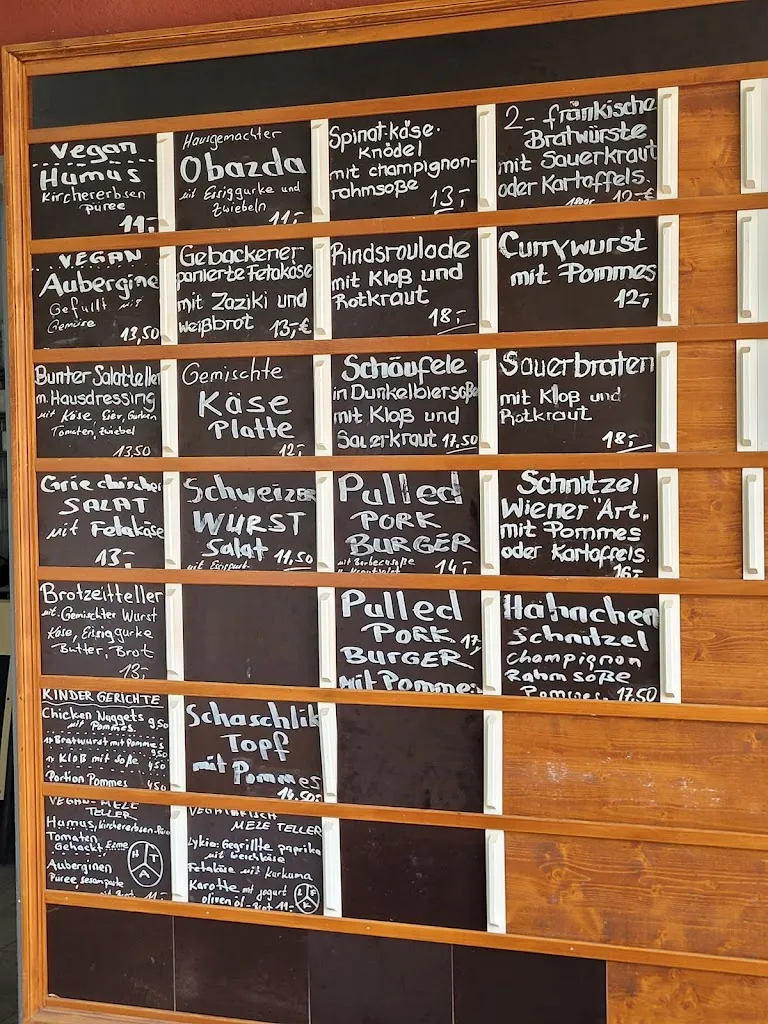 Vegan
Humus
Kirchererbsen
Püree
11,-
Hausgemachter
Obazda
mit Essiggurke und
Zwiebeln
11,-
Spinat-Käse-
Knödel
mit champignon-
rahmsoße
13,-
2- fränkische
Bratwürste
mit Sauerkraut
oder Kartoffels.
12,-€
VEGAN
Aubergine
Gefüllt mit
Gemüse
13,50
Gebackener
panierte Fetakäse
mit Zaziki und
weißbrot 13,-€
Rindsroulade
mit Kloß und
Rotkraut
18,-
Currywurst
mit Pommes
12,-
Bunter Salatteller
m. Hausdressing
mit Käse, Eier, Gurken
Tomaten, zwiebel
13,50
Gemischte
Käse
Platte
12,-
Schäufele
in Dunkelbiersoße
mit Kloß und
Sauerkraut 17,50
Sauerbraten
mit Kloß und
Rotkraut
18,-
Griechischer
SALAT
mit Fetakäse
13,-
Schweizer
WURST
Salat 11,50
Pulled
PORK
BURGER
14,-
Schnitzel
Wiener "Art"
mit Pommes
oder Kartoffels.
16,-
Brotzeitteller
mit Gemischter Wurst
Käse, Essiggurke
Butter, Brot
13,-
Pulled
PORK 17,-
BURGER
mit Pommes
Hähnchen
Schnitzel
champignon
Rahm soße
Pommes 17,50
KINDER GERICHTE
Chicken Nuggets 9,50
mit Pommes
1x Bratwurst mit Pommes
9,50
1x Kloß mit soße 4,50
Portion Pommes 4,50
Schaschlik
Topf
mit Pommes
14,50
VEGAN- MEZE
TELLER
Humus, Kirchererbsen-Püree
Tomaten
Gehackt, Ezme
Auberginen
Püree, sesampaste
mit Brot 11,-
H T A
VEGETARISCH
MEZE TELLER
Lykia: Gegrillte paprika
mit Weichkäse
Fetakäse mit Kurkuma
Karotte mit jogurt
oliven öl - Brot 11,-
L F K